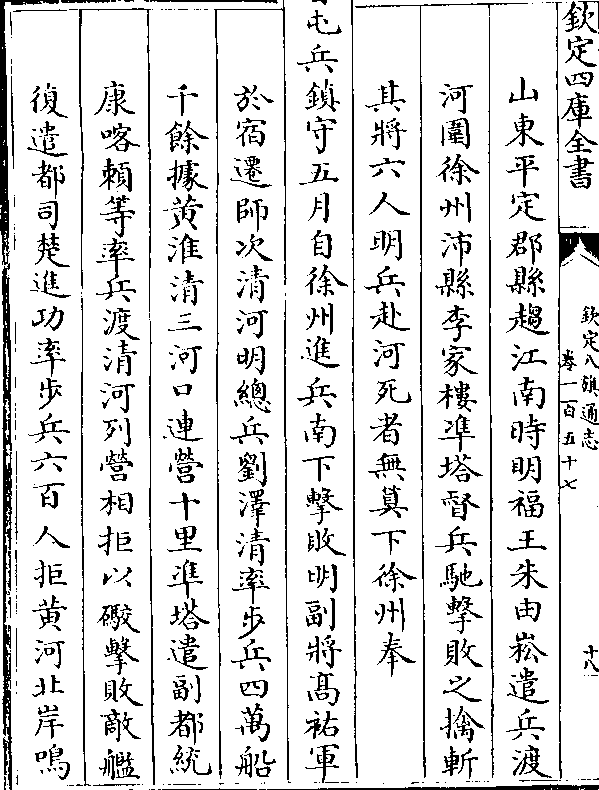 欽定四庫全書
欽定八旗通志
卷一百五十七
十八
山東平定郡縣趨江南時明福王朱由崧遣兵渡
河圍徐州沛縣李家樓凖塔督兵馳擊敗之擒斬
其將六人明兵赴河死者無算下徐州奉
屯兵鎮守五月自徐州進兵南下擊敗明副將高祐軍
於宿遷師次清河明總兵劉澤清率步兵四萬船
千餘據黄淮清三河口連營十里凖塔遣副都統
康喀賴等率兵渡清河列營相拒以礮擊敗敵艦
復遣都司楚進功率步兵六百人拒黄河北岸鳴